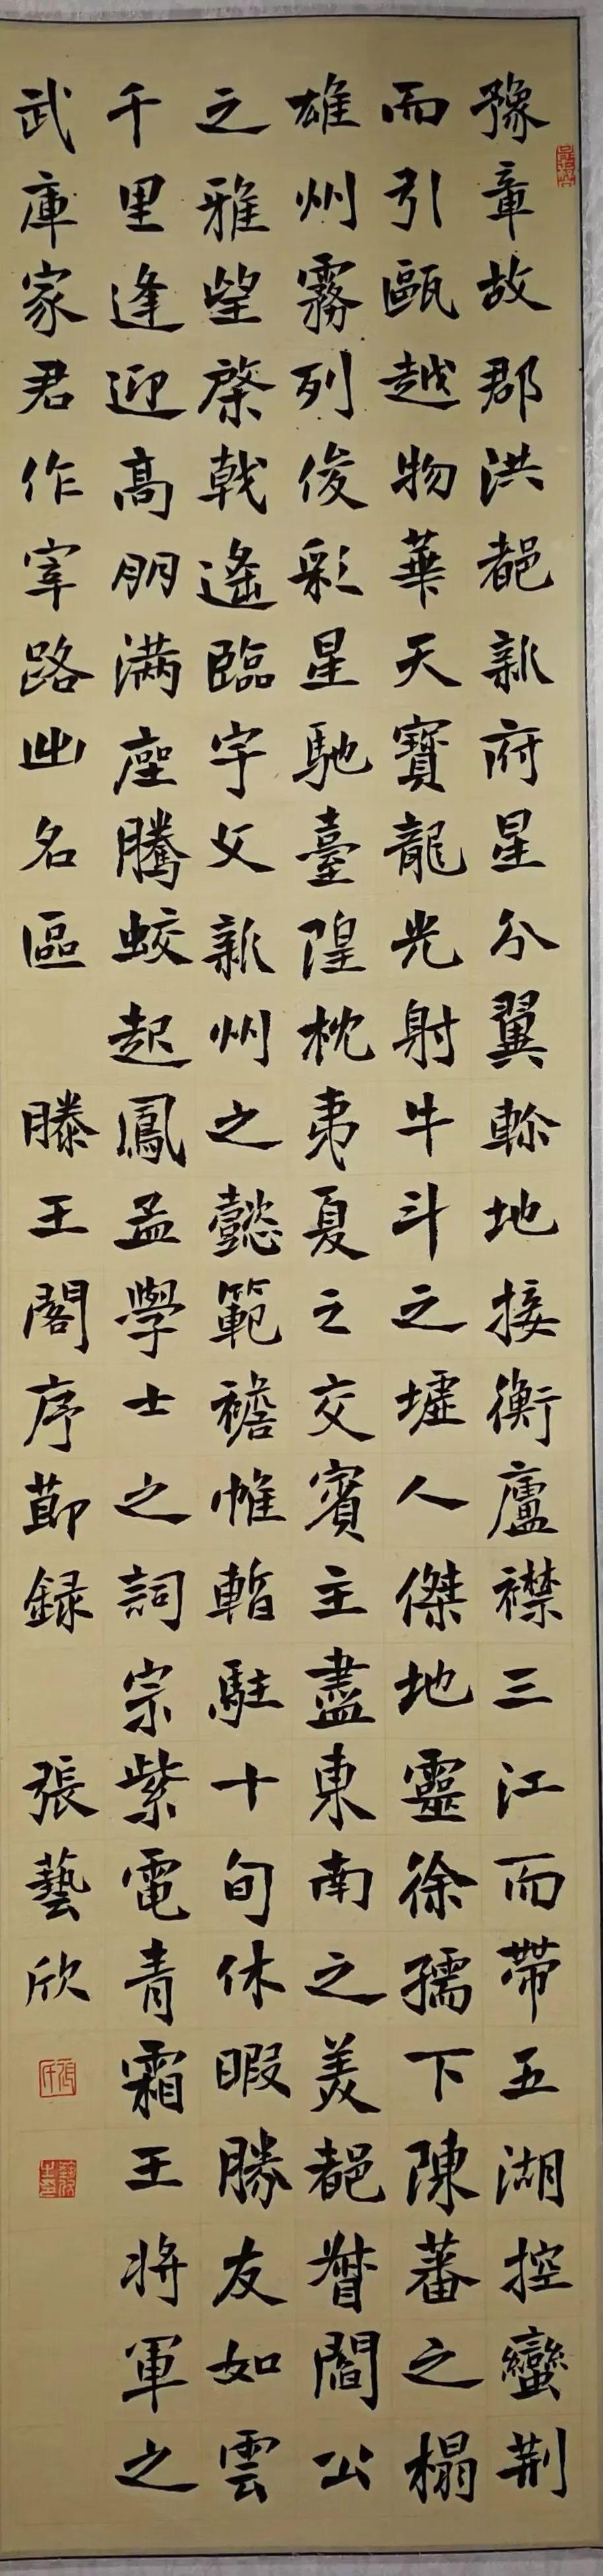 豫章故郡洪都新府星分翼軫地接衡廬襟三江而帶五湖控蠻荊
而引甌越物華天寶龍光射牛斗之墟人傑地靈徐孺下陳蕃之榻
雄州霧列俊彩星馳臺隍枕夷夏之交賓主盡東南之美都督閻公
之雅望棨戟遙臨宇文新州之懿範襜帷暫駐十旬休暇勝友如雲
千里逢迎高朋滿座騰蛟起鳳孟學士之詞宗紫電青霜王將軍之
武庫家君作宰路出名區 滕王閣序節録 張藝欣